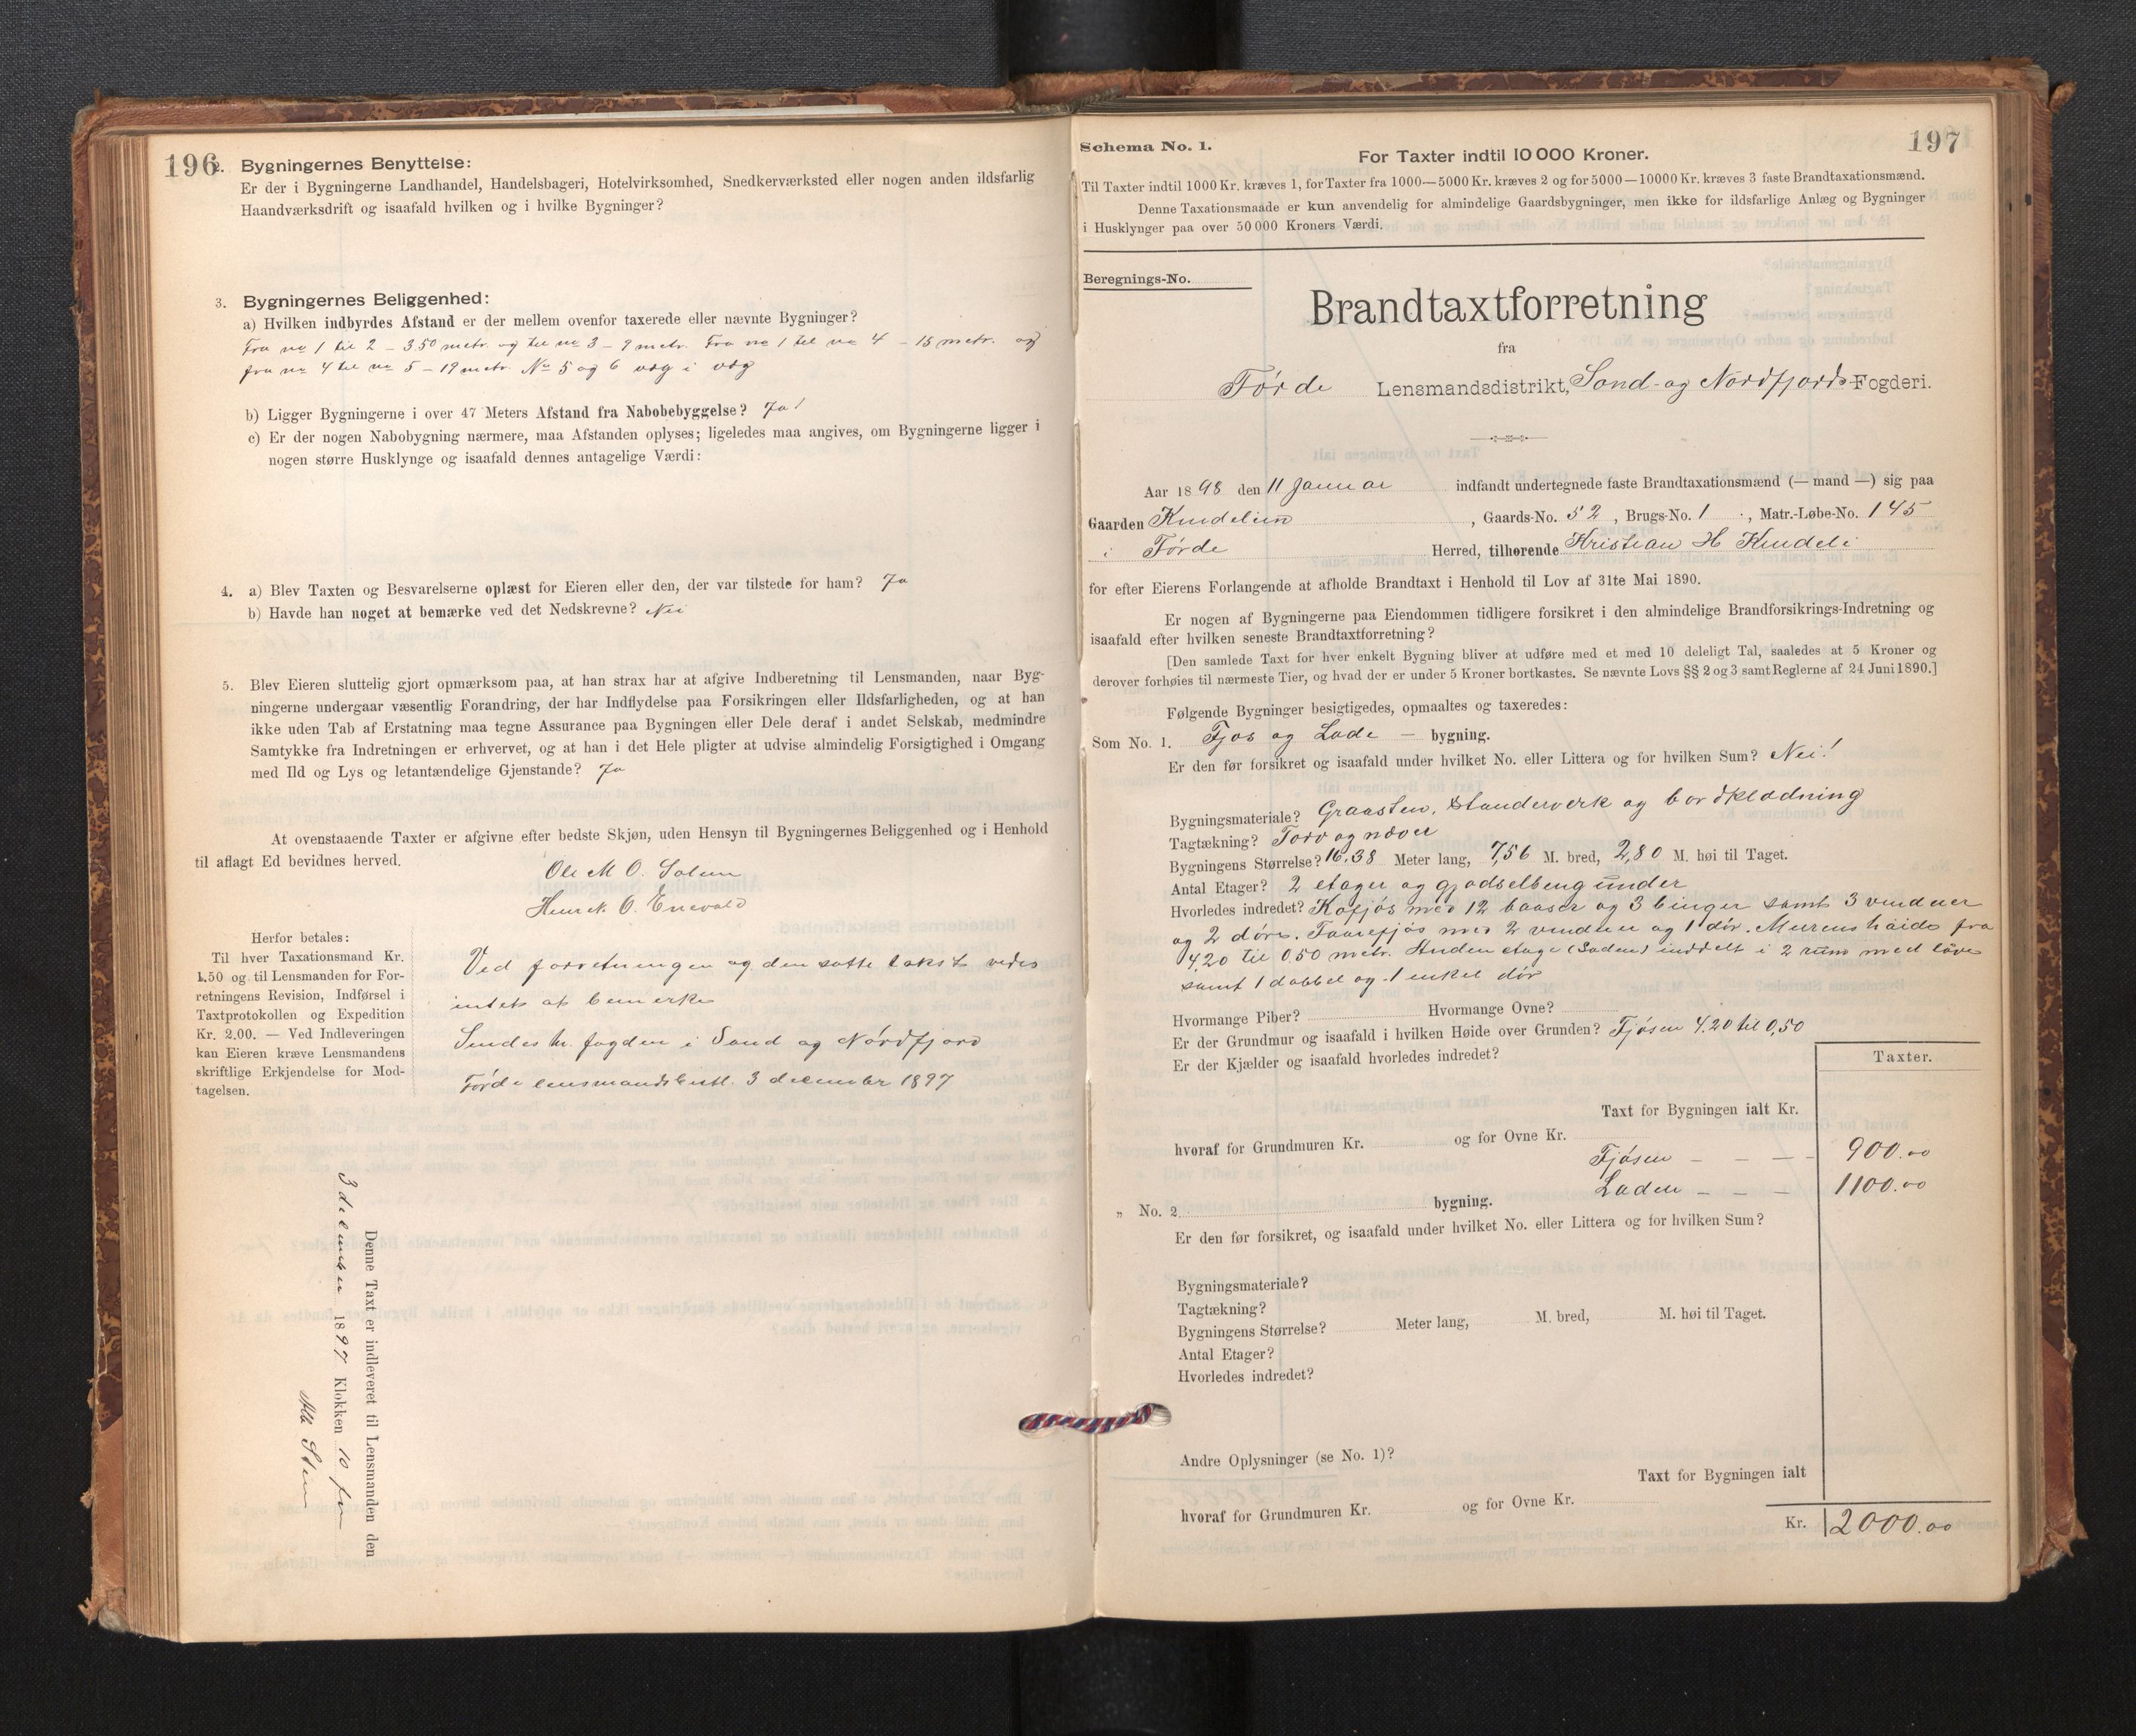 196
2. Bygningernes Benyttelse:
Er der i Bygningerne Landhandel, Handelsbageri, Hotelvirksomhed, Snedkerværksted eller nogen anden ildsfarlig
Haandværksdrift og isaafald hvilken og i hvilke Bygninger?
3. Bygningernes Beliggenhed:
a) Hvilken indbyrdes Afstand er der mellem ovenfor taxerede eller nævnte Bygninger?
Fra no 1 til 2 – 3.50 metr. og til no 3 – 9 metr. Fra no 1 til no 4 – 15 metr. og
fra no 4 til no 5 – 19 metr. No 5 og 6 væg i væg
b) Ligger Bygningerne i over 47 Meters Afstand fra Nabobebyggelse? Ja!
c) Er der nogen Nabobygning nærmere, maa Afstanden oplyses; ligeledes maa angives, om Bygningerne ligger i
nogen større Husklynge og isaafald dennes antagelige Værdi:
4. a) Blev Taxten og Besvarelserne oplæst for Eieren eller den, der var tilstede for ham? Ja
b) Havde han noget at bemærke ved det Nedskrevne? Nei
5. Blev Eieren sluttelig gjort opmærksom paa, at han strax har at afgive Indberetning til Lensmanden, naar Byg-
ningerne undergaar væsentlig Forandring, der har Indflydelse paa Forsikringen eller Ildsfarligheden, og at han
ikke uden Tab af Erstatning maa tegne Assurance paa Bygningen eller Dele deraf i andet Selskab, medmindre
Samtykke fra Indretningen er erhvervet, og at han i det Hele pligter at udvise almindelig Forsigtighed i Omgang
med Ild og Lys og letantændelige Gjenstande? Ja
At ovenstaaende Taxter er afgivne efter bedste Skjøn, uden Hensyn til Bygningernes Beliggenhed og i Henhold
til aflagt Ed bevidnes herved.
Ole M O. Solem
Henrik O.
Herfor betales:
Til hver Taxationsmand Kr.
1.50 og til Lensmanden for For-
retningens Revision, Indførsel i
Taxtprotokollen og Expedition
Kr. 2.00. — Ved Indleveringen
kan Eieren kræve Lensmandens
skriftlige Erkjendelse for Mod-
tagelsen.
Ved forretningen og den satte takst vides
intet at bemerke
Sendes hr. fogden i Sønd og Nordfjord
Førde lensmandsbestl. 3 december 1897
Denne Taxt er indleveret til Lensmanden den
3 december 1897 Klokken 10 fm
197
Schema No. 1.
For Taxter indtil 10 000 Kroner.
Til Taxter indtil 1000 Kr. kræves 1, for Taxter fra 1000—5000 Kr. kræves 2 og for 5000—10000 Kr. kræves 3 faste Brandtaxationsmænd.
Denne Taxationsmaade er kun anvendelig for almindelige Gaardsbygninger, men ikke for ildsfarlige Anlæg og Bygninger
i Husklynger paa over 50 000 Kroners Værdi.
Beregnings-No.
Brandtaxtforretning
fra
Førde Lensmandsdistrikt, Sønd- og Nordfjords Fogderi.
Aar 1898 den 11 Januar indfandt undertegnede faste Brandtaxationsmænd (— mand —) sig paa
Gaarden , Gaards-No. 52, Brugs-No. 1, Matr.-Løbe-No. 145
i Førde Herred, tilhørende Kristian H
for efter Eierens Forlangende at afholde Brandtaxt i Henhold til Lov af 31te Mai 1890.
Er nogen af Bygningerne paa Eiendommen tidligere forsikret i den almindelige Brandforsikrings-Indretning og
isaafald efter hvilken seneste Brandtaxtforretning?
[Den samlede Taxt for hver enkelt Bygning bliver at udføre med et med 10 deleligt Tal, saaledes at 5 Kroner og
derover forhøies til nærmeste Tier, og hvad der er under 5 Kroner bortkastes. Se nævnte Lovs §§ 2 og 3 samt Reglerne af 24 Juni 1890.]
Følgende Bygninger besigtigedes, opmaaltes og taxeredes:
Som No. 1. Fjøs og Lade — bygning.
Er den før forsikret og isaafald under hvilket No. eller Littera og for hvilken Sum? Nei!
Bygningsmateriale? Graasten, standerverk og bordklædning
Tagtækning? Torv og næver
Bygningens Størrelse? 16,38 Meter lang, 7,56 M. bred, 2,80 M. høi til Taget.
Antal Etager? 2 etager og gjødselbeng under
Hvorledes indredet? Kofjøs med 12 baaser og 3 binger samt 3 vinduer
og 2 døre. Faarefjøs med 2 vinduer og 1 dør. Murens høide fra
4,20 til 0,50 metr. Anden etage (Laden) inddelt i 2 rum med løve
samt 1 dobbel og 1 enkel dør
Hvormange Piber? Hvormange Ovne?
Er der Grundmur og isaafald i hvilken Høide over Grunden? Fjøsen 4.20 til 0,50
Er der Kjælder og isaafald hvorledes indredet?
Taxter.
Taxt for Bygningen ialt Kr.
hvoraf for Grundmuren Kr. og for Ovne Kr.
Fjøsen – – – 900.00
Laden – – – 1100.00
„ No. 2 bygning.
Er den før forsikret, og isaafald under hvilket No. eller Littera og for hvilken Sum?
Bygningsmateriale?
Tagtækning?
Bygningens Størrelse? Meter lang, M. bred, M. høi til Taget.
Antal Etager?
Hvorledes indredet?
Andre Oplysninger (se No. 1)?
Taxt for Bygningen ialt
hvoraf for Grundmuren Kr. og for Ovne Kr.
Kr. 2000.00